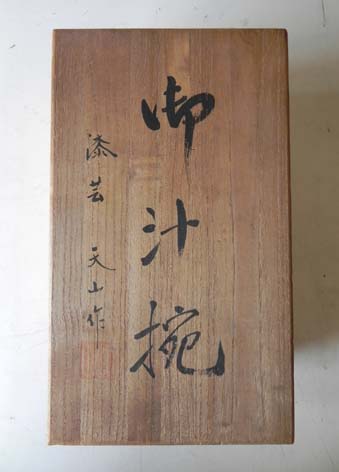 御汁椀
漆芸 天山作